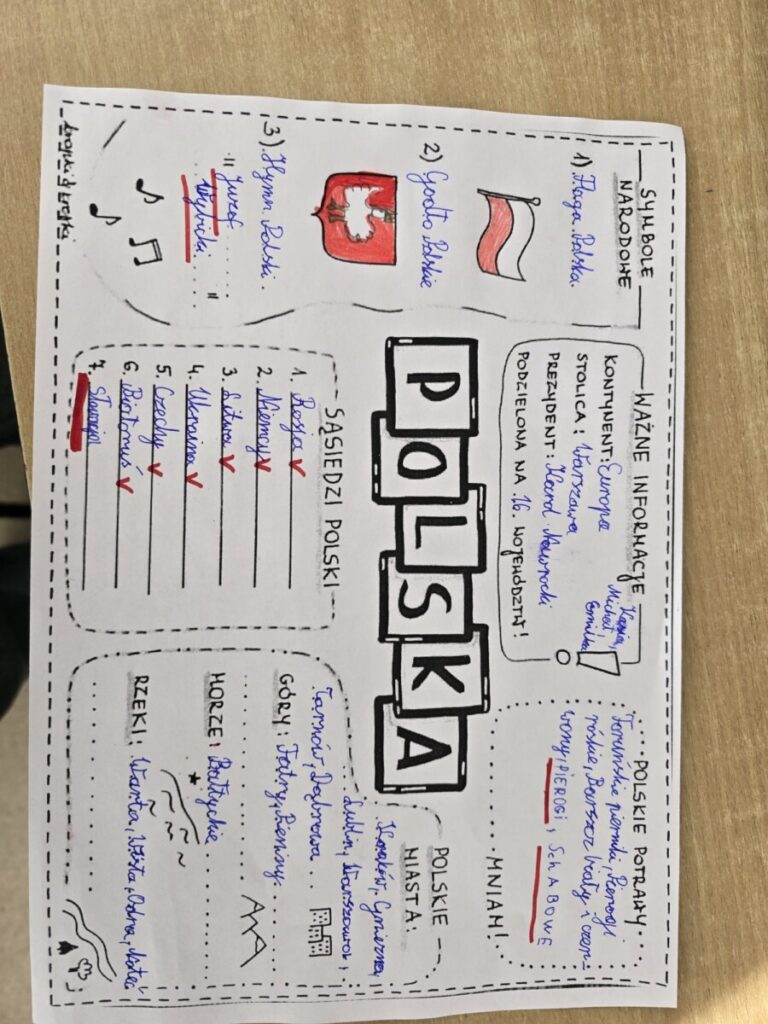 SYMBOLE
NARODOWE
1) Flaga Polska.
2) Godło Polskie
3) Hymn Polski.
" Józef
Wybicki "
kropki & kreski
WAŻNE INFORMACJE
KONTYNENT: Europa
STOLICA: Warszawa
PREZYDENT: Karol Nawrocki
PODZIELONA NA 16. WOJEWÓDZTW!
Kasia,
Michał,
Emilka
POLSKA
SĄSIEDZI POLSKI
1. Rosja
2. Niemcy
3. Litwa
4. Ukraina
5. Czechy
6. Białoruś
7. Słowacja
POLSKIE POTRAWY
Toruńskie pierniki, Pierogi
ruskie, Barszcz biały i czer-
wony, PIEROGI, SCHABOWE
MNIAM!
POLSKIE
MIASTA:
Kraków, Gniezno,
Lublin, Warszawa,
Tarnów, Dąbrowa
GÓRY: Tatry, Pieniny.
MORZE: Bałtyckie
RZEKI: Warta, Wisła, Odra, Noteć